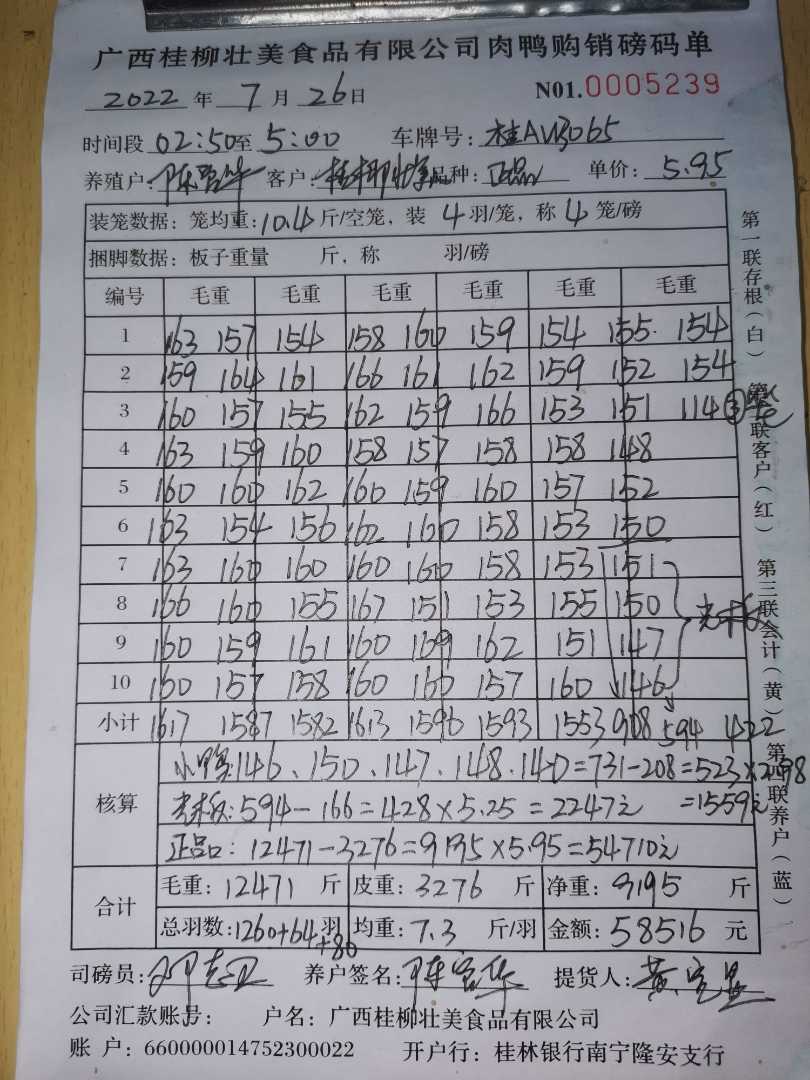 广西桂柳壮美食品有限公司肉鸭购销磅码单
2022 年 7 月 26 日 N01.0005239
时间段 02:50 至 5:00 车牌号: 桂AV3065
养殖户: 陈富华 客户: 桂柳壮美 品种: 正品 单价: 5.95
装笼数据: 笼均重: 10.4 斤/空笼, 装 4 羽/笼, 称 4 笼/磅
捆脚数据: 板子重量 斤, 称 羽/磅
编号 毛重 毛重 毛重 毛重 毛重 毛重
1 163 157 154 158 160 159 154 155 154
2 159 164 161 166 161 162 159 152 154
3 160 157 155 162 159 166 153 151 114 ③笼
4 163 159 160 158 157 158 158 148
5 160 160 162 160 159 160 157 152
6 163 154 156 162 160 158 153 150
7 163 160 160 160 160 158 153 151
8 166 160 155 167 151 153 155 150
9 160 159 161 160 169 162 151 147
10 160 157 158 160 160 157 160 146
小计 1617 1587 1582 1613 1596 1593 1553 908 594 422
核算 小鸭: 146、150、147、148、140=731-208=523×2.98
=1559元
594-166=428×5.25=2247元
正品: 12471-3276=9195×5.95=54710元
合计 毛重: 12471 斤 皮重: 3276 斤 净重: 9195 斤
总羽数: 1260+64+80 羽 均重: 7.3 斤/羽 金额: 58516 元
司磅员: 养户签名: 陈富华 提货人:
公司汇款账号: 户名: 广西桂柳壮美食品有限公司
账户: 660000014752300022 开户行: 桂林银行南宁隆安支行
第一联存根(白)
第二联客户(红)
第三联会计(黄)
第四联养户(蓝)